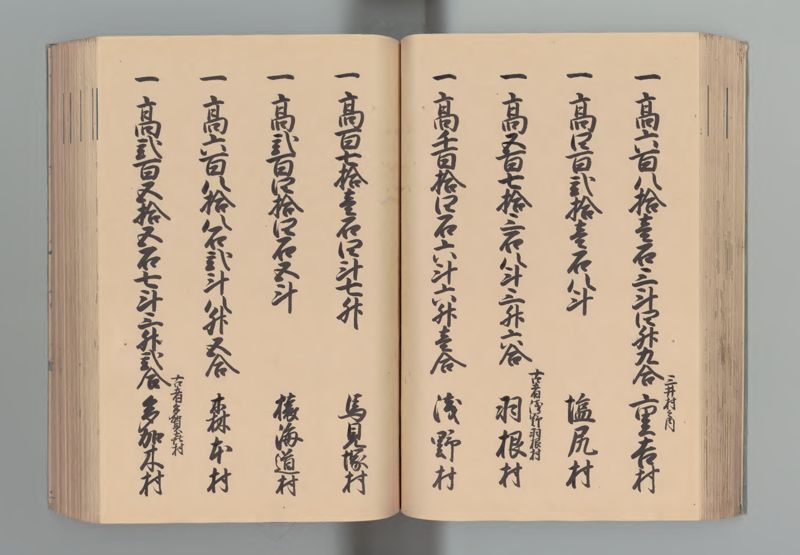 一 高六百八拾壱石三斗四升九合 三井村之内 重吉村
一 高四百弐拾壱石八斗 塩尻村
一 高五百七拾三石八斗三升六合 古者浅野羽根村 羽根村
一 高千百拾四石六斗六升壱合 浅野村
一 高百七拾壱石四斗七升 馬見塚村
一 高弐百四拾四石五斗 猿海道村
一 高六百八拾八石弐斗八升五合 森本村
一 高弐百五拾五石七斗三升弐合 古者多賀喜村 多加木村